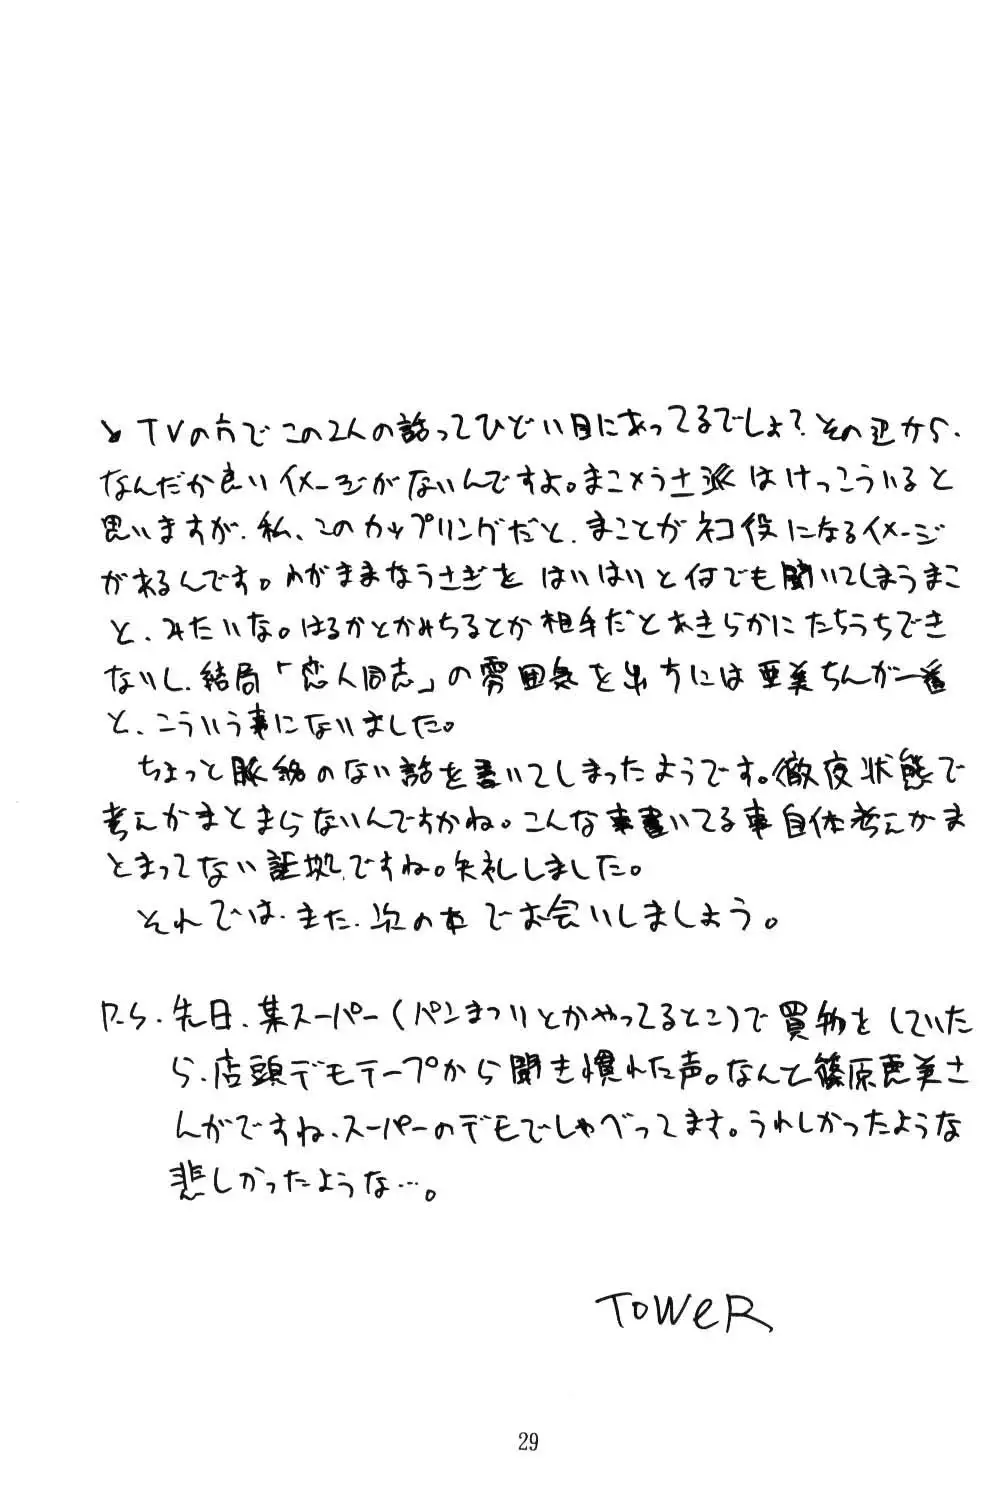 とTVの方でこの2人の話ってひどい目にあってるでしょ？その辺から、
なんだか良いイメージがないんですよ。まこ×うさ派はけっこういると
思いますが、私、このカップリングだと、まことがネコ役になるイメージ
があるんです。わがままなうさぎをはいはいと何でも聞いてしまうまこ
と、みたいな。はるかとかみちるとか相手だとあきらかにたちうちでき
ないし、結局「恋人同志」の雰囲気を出すには亜美ちんが一番
と、こういう事になりました。
ちょっと脈絡のない話を書いてしまったようです。徹夜状態で
考えがまとまらないんですかね。こんな事書いてる事自体考えがま
とまってない証拠ですね。失礼しました。
それでは、また、次の本でお会いしましょう。
P.S. 先日、某スーパー（パンまつりとかやってるとこ）で買物をしていた
ら、店頭デモテープから聞き慣れた声。なんと篠原恵美さ
んがですね、スーパーのデモでしゃべってます。うれしかったような
悲しかったような…。
TOWeR
29